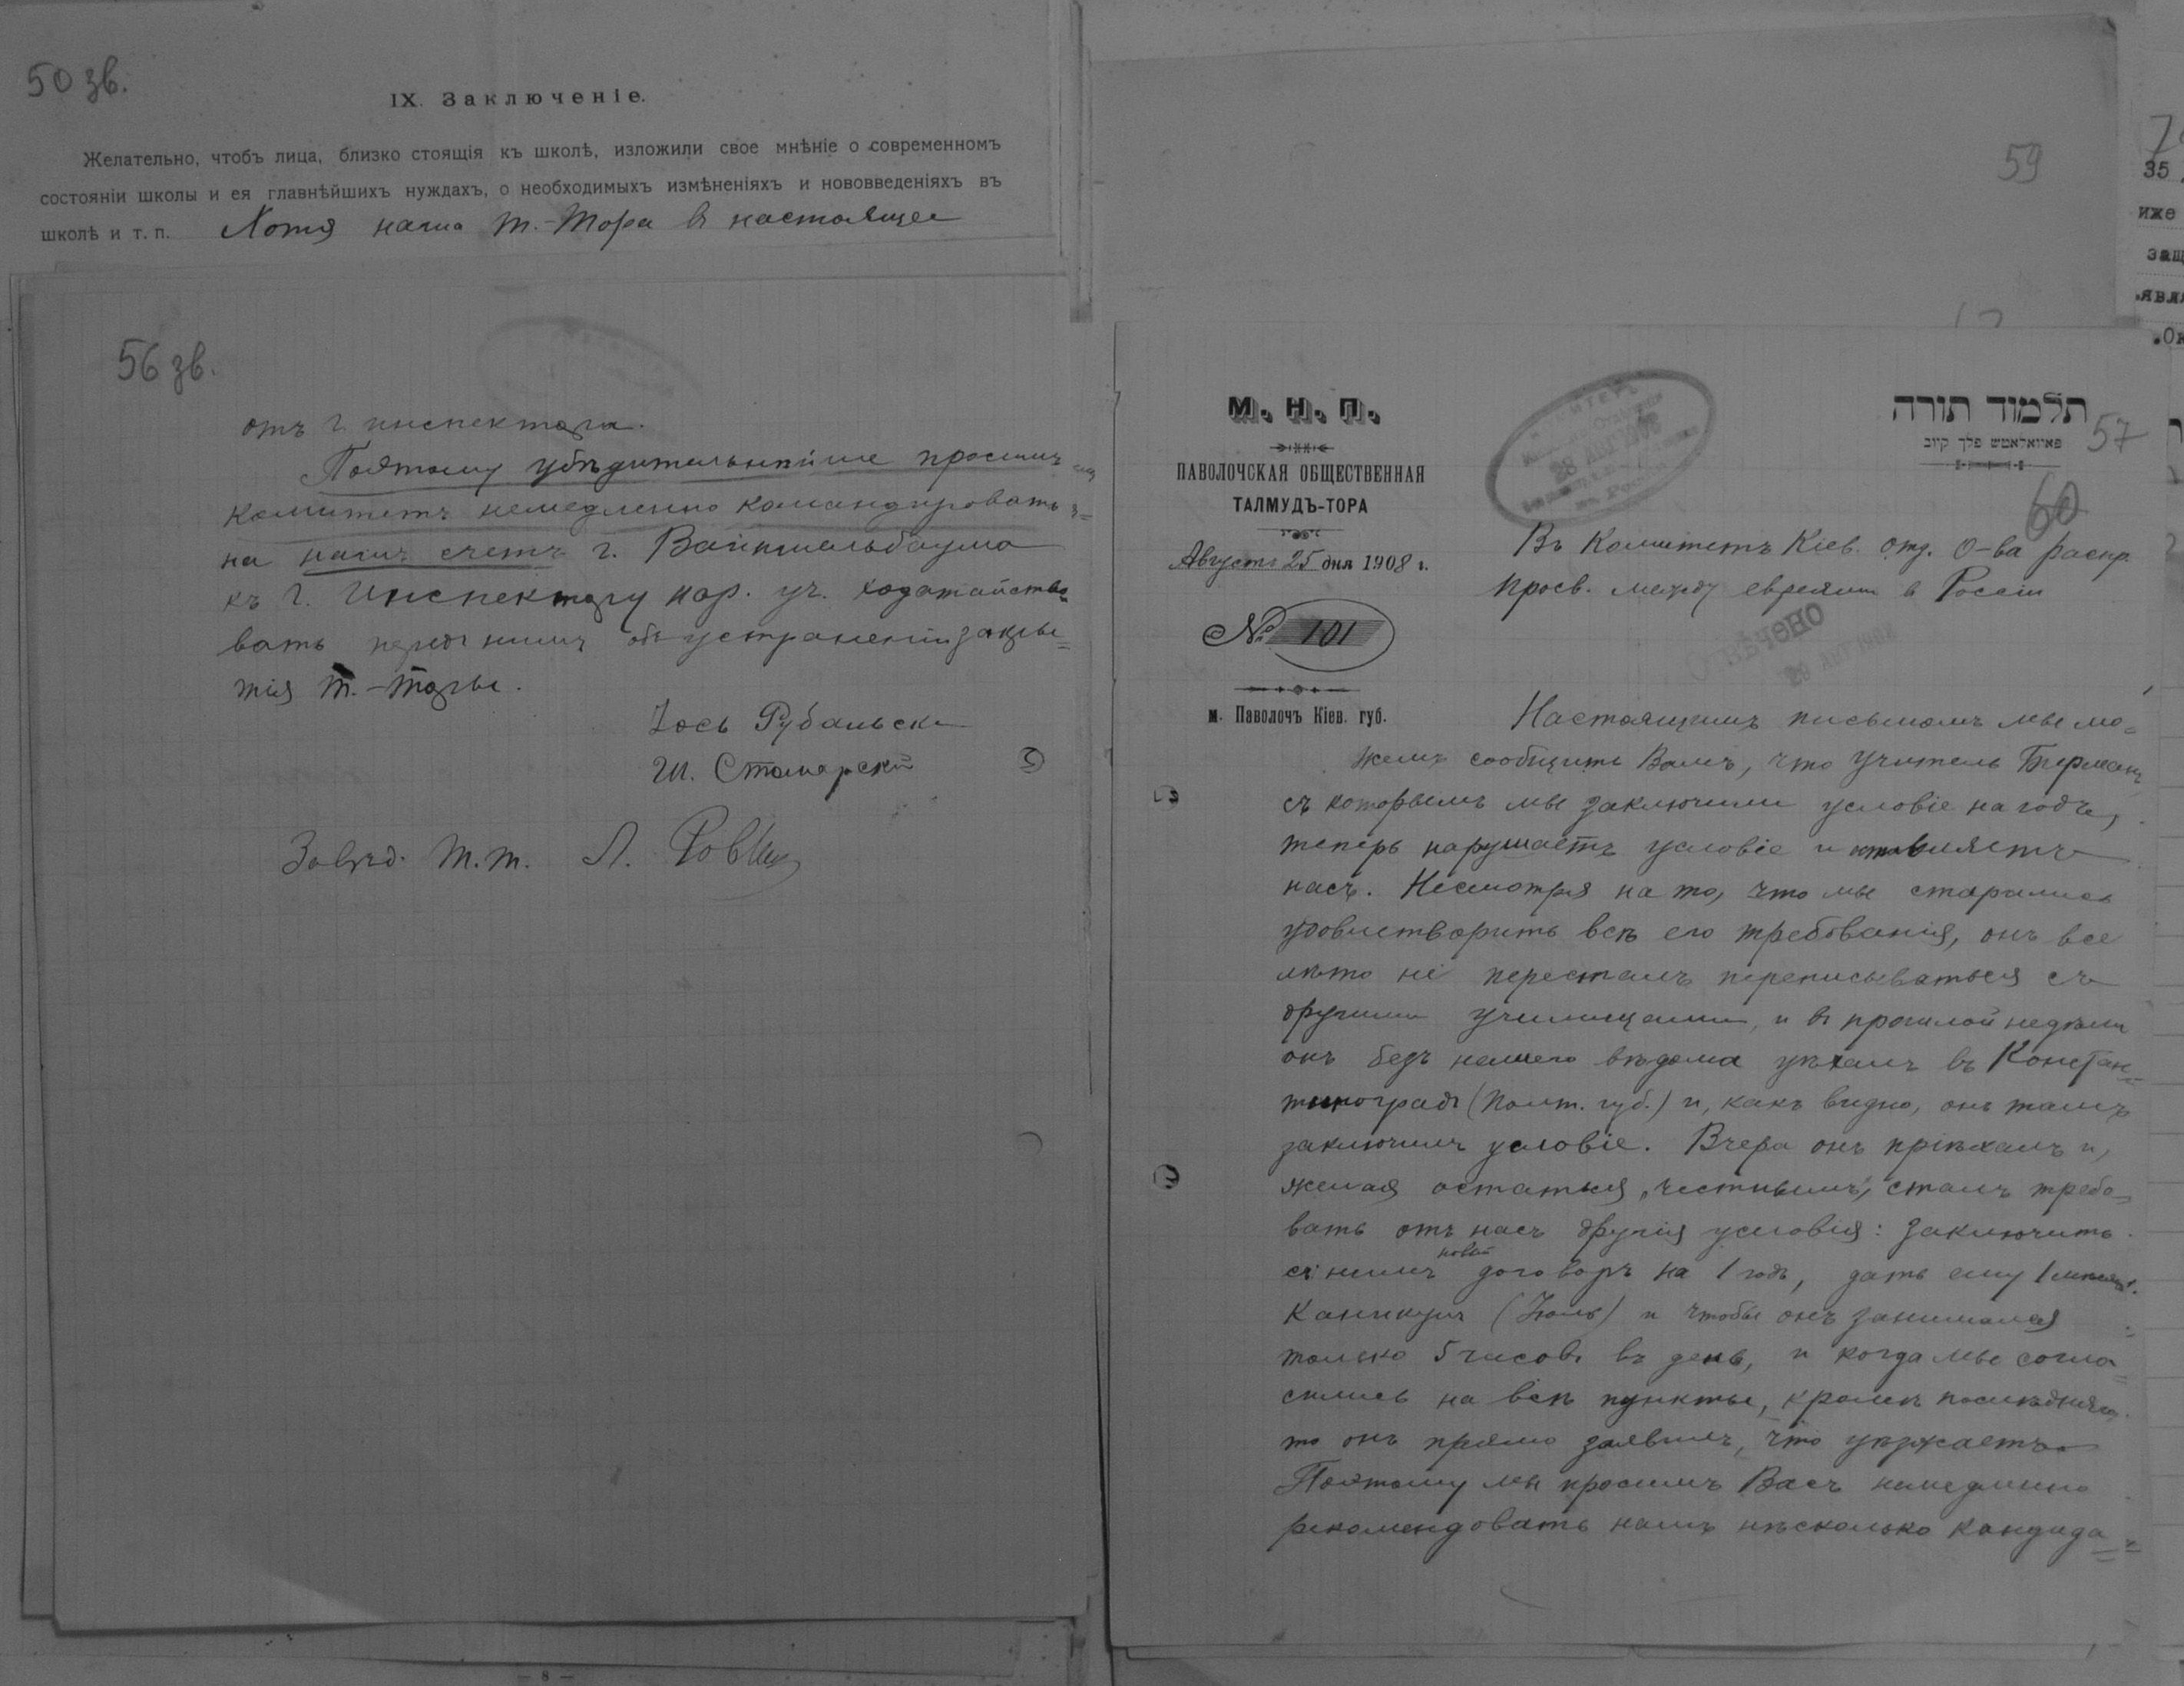 50 зв.
IX. Заключеніе.
Желательно, чтобъ лица, близко стоящія къ школѣ, изложили свое мнѣніе о современномъ
состояніи школы и ея главнѣйшихъ нуждахъ, о необходимыхъ измѣненіяхъ и нововведеніяхъ въ
школѣ и т. п. Хотя наша Т.-Тора в настоящее
56 зв.
отъ г. инспектора.
Поэтому убѣдительнѣйше просимъ
комитетъ немедленно командировать
на нашъ счетъ г. Вайншельбаума
къ г. Инспектору нар. уч. ходатайство
вать передъ нимъ объ устраненіи закры=
тія Т.-Торы.
Іось Рубальск
Ш. Столярскій
Завѣд. Т.Т. Л.
— 8 —
59
М. Н. П.
ПАВОЛОЧСКАЯ ОБЩЕСТВЕННАЯ
ТАЛМУДЪ-ТОРА
Августа 25 дня 1908 г.
№ 101
м. Паволочъ Кіев. губ.
28 АВГ 1908
תלמוד תורה
פאוואלאטש פלך קיוב
57
60
Въ Комитетъ Кіев. отд. О-ва распр.
просв. между евреями в Россіи
ОТВѢЧЕНО
29 АВГ 1908
Настоящимъ письмомъ мы мо=
жемъ сообщить Вамъ, что учитель Берманъ,
съ которымъ мы заключили условіе на годъ,
теперь нарушаетъ условіе и оставляетъ
насъ. Несмотря на то, что мы старались
удовлетворить всѣ его требованія, онъ все
лѣто не пересталъ переписываться съ
другими училищами, и в прошлой недѣли
онъ безъ нашего вѣдома уѣхалъ въ Констан=
тиноградъ (Полт. губ.) и, какъ видно, онъ тамъ
заключилъ условіе. Вчера онъ пріѣхалъ и,
желая остаться „честнымъ", сталъ требо=
вать отъ насъ другія условія: заключить
съ нимъ новый договоръ на 1 годъ, дать ему 1 мѣсяцъ
каникулъ (Іюль) и чтобы онъ занимался
только 5 часовъ въ день, и когда мы согла=
сились на всѣ пункты, кромѣ послѣдняго,
то онъ прямо заявилъ, что уѣзжаетъ.
Поэтому мы просимъ Васъ немедленно
рекомендовать намъ нѣсколько кандида=
35
иже
защ
явл